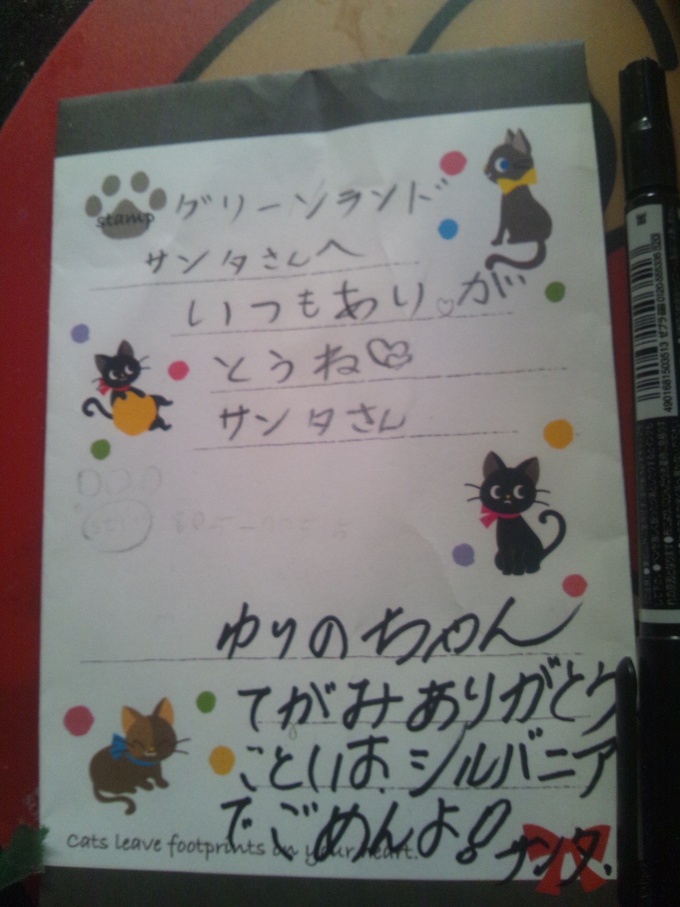 stamp
グリーンランド
サンタさんへ
いつもあり♡が
とうね♡
サンタさん
ゆりのちゃん
てがみありがとう
ことしは、シルバニア
でごめんよ!
サンタ.
Cats leave footprints on your heart.
4901681503513